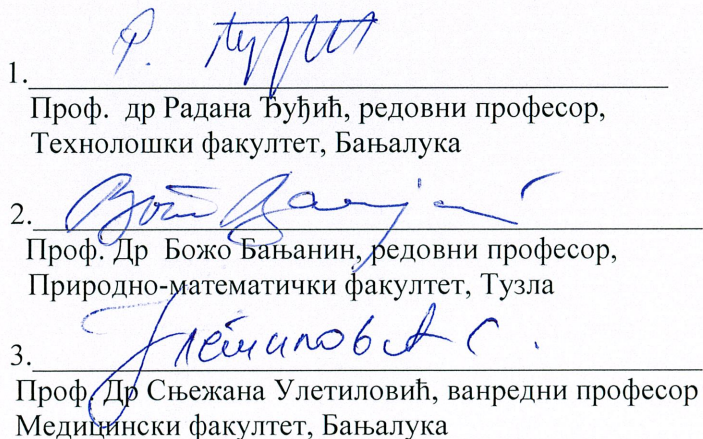 1.
Проф. др Радана Ђуђић, редовни професор,
Технолошки факултет, Бањалука
2.
Проф. Др Божо Бањанин, редовни професор,
Природно-математички факултет, Тузла
Улетиловић С.
3.
Проф. Др Сњежана Улетиловић, ванредни професор
Медицински факултет, Бањалука